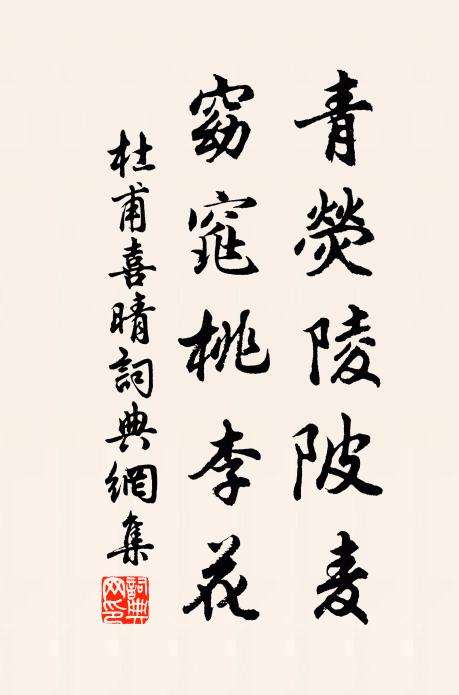 青熒陵陂麦
窈窕桃李花
杜甫喜晴詞典網集
詞典網印